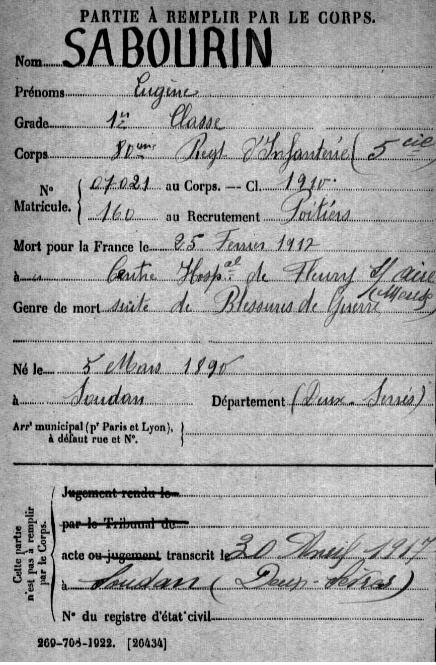 PARTIE À REMPLIR PAR LE CORPS.
Nom SABOURIN
Prénoms Eugène
Grade 1re Classe
Corps 80ème Regt d'Infanterie (5 cie
N° Matricule. { 07021 au Corps. — Cl. 1910.
160 au Recrutement Poitiers
Mort pour la France le 25 Fevrier 1917
à Centre Hospal de Fleury s/ aire (Meuse)
Genre de mort suite de Blessures de Guerre
Né le 5 Mars 1890
à Soudan Département (Deux-Sevres)
Arrt municipal (pr Paris et Lyon), à défaut rue et N°. }
Cette partie n'est pas à remplir par le Corps.
Jugement rendu le
par le Tribunal de
acte ou jugement transcrit le 20 Avril 1917
à Soudan (Deux-Sèvres)
N° du registre d'état civil
269-708-1922. [26434]